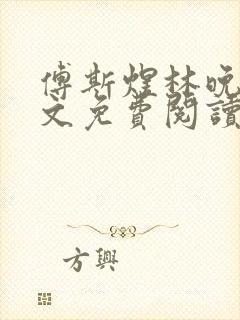 傅斯煜林晚
文免費閱讀
方興